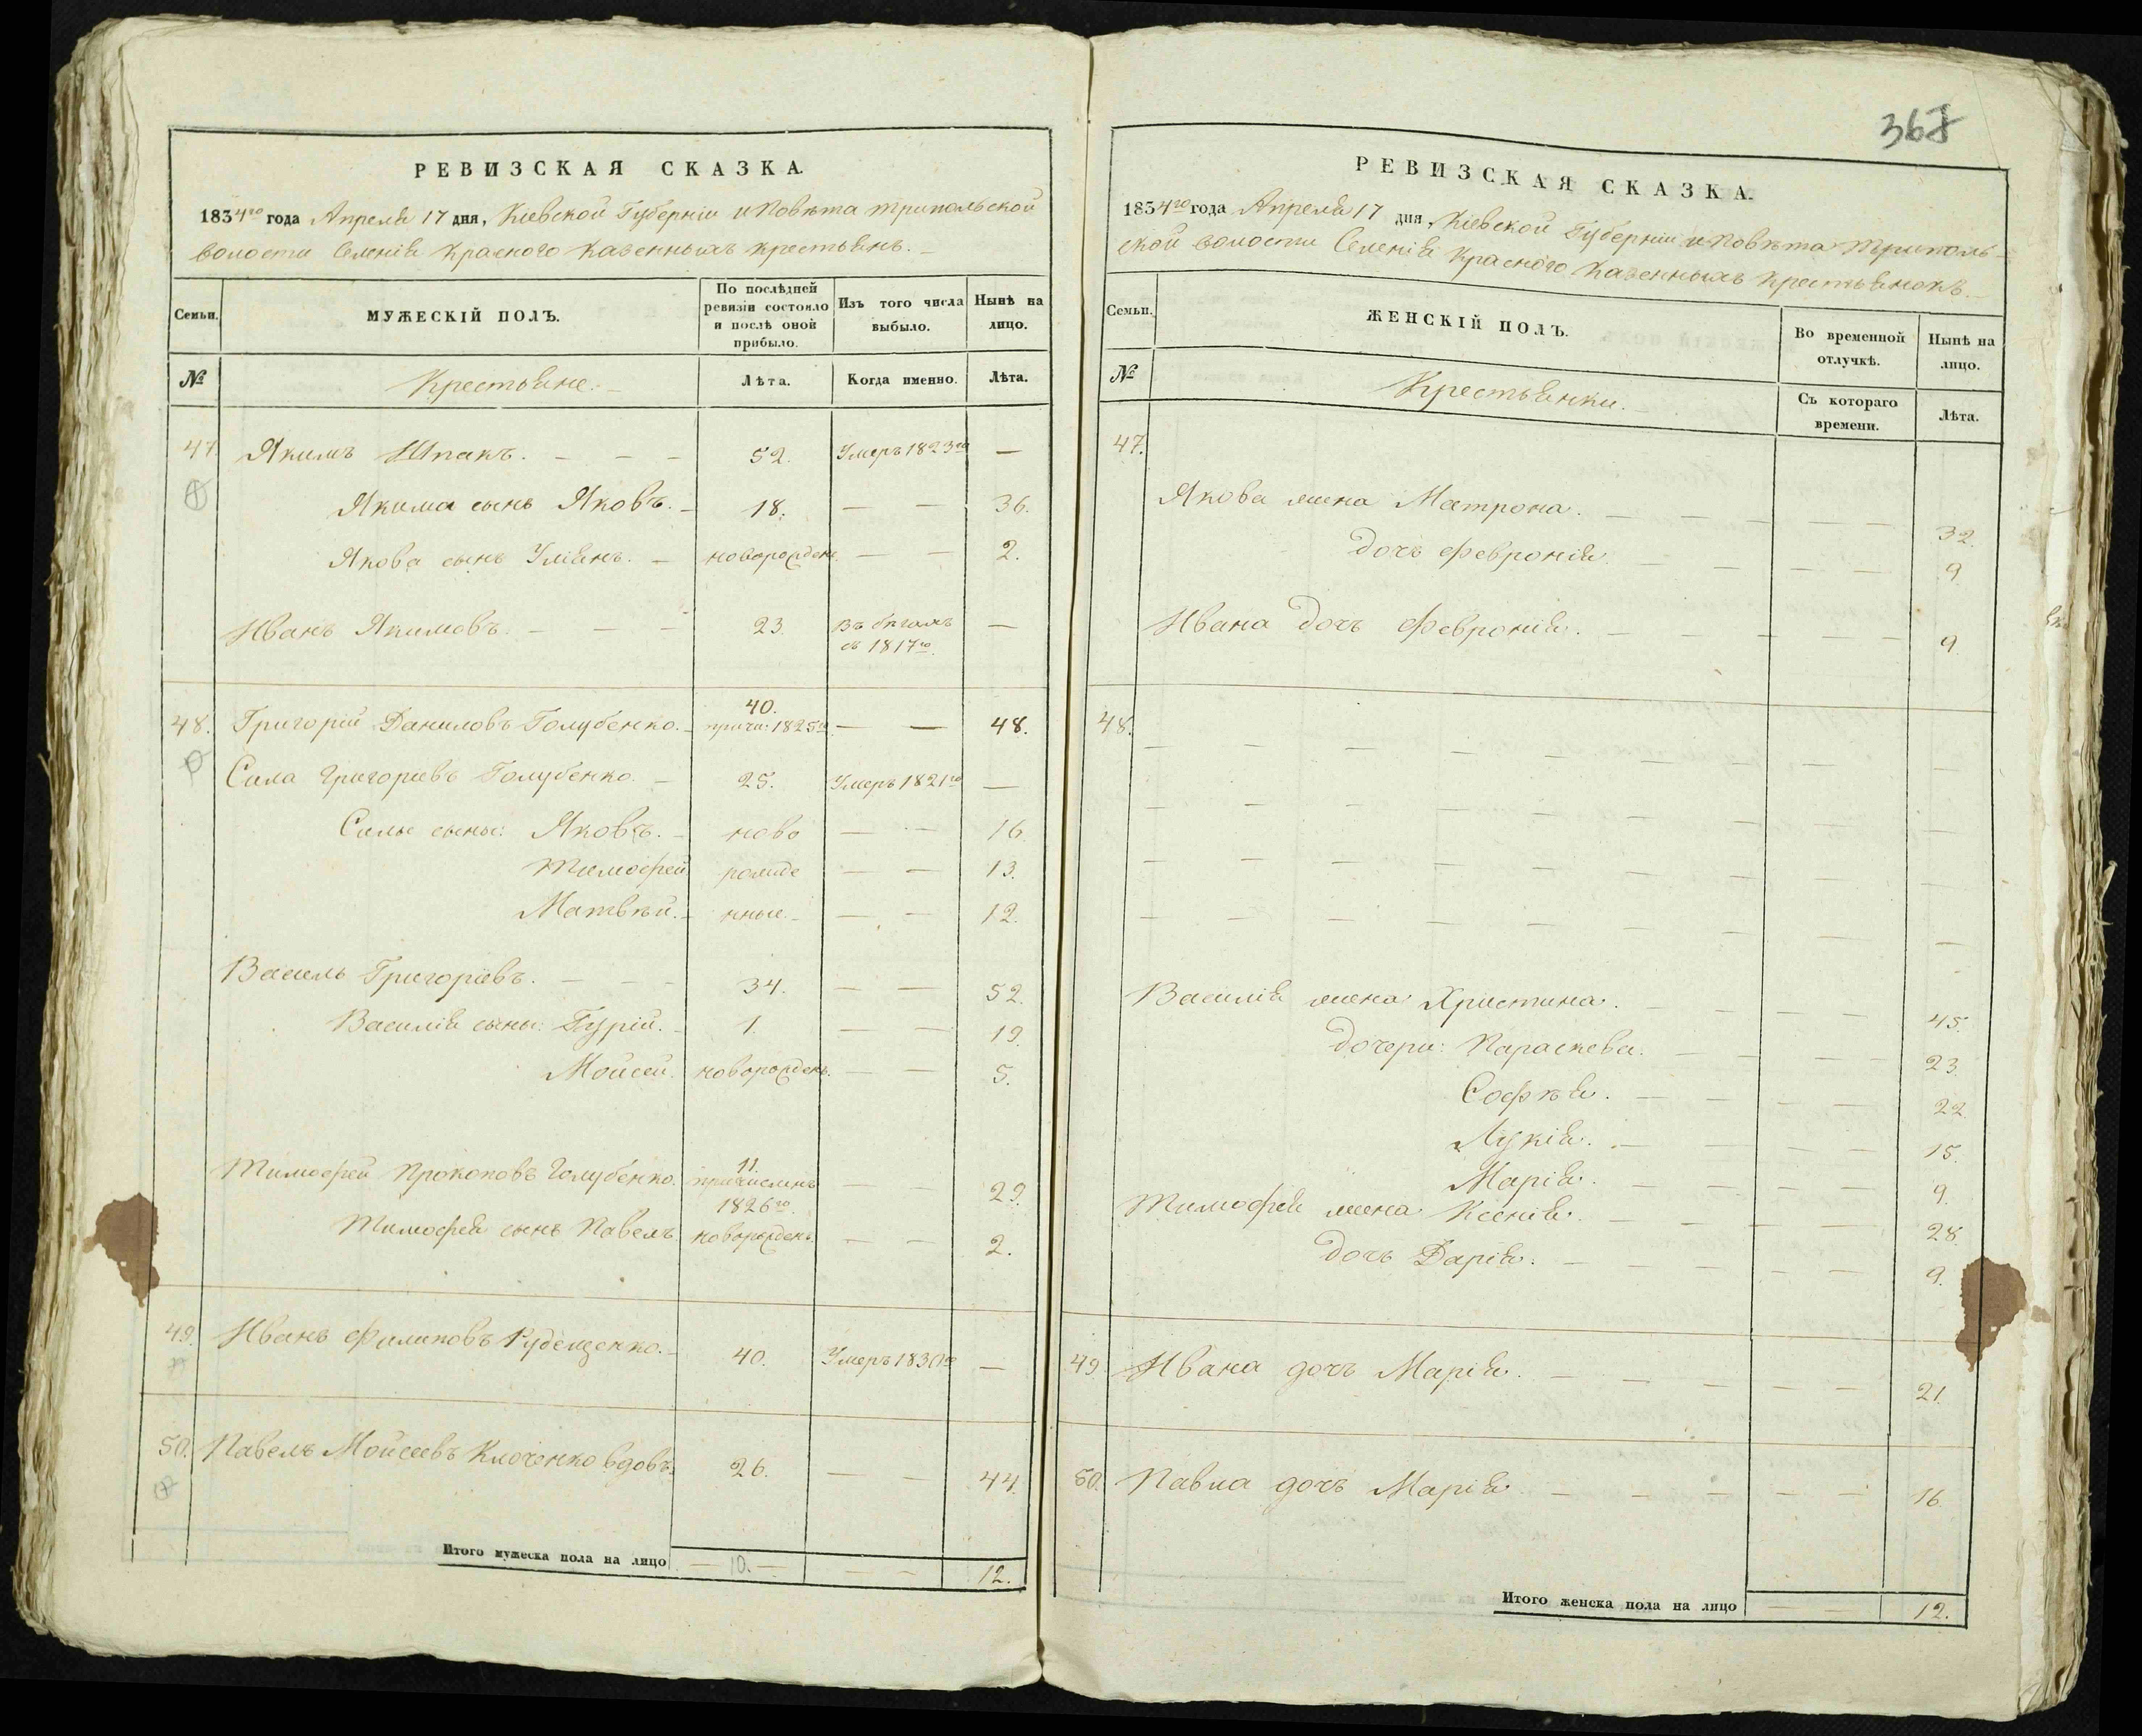 РЕВИЗСКАЯ СКАЗКА.
1834го года Апреля 17 дня, Кіевской Губерніи и Повѣта Трипольской
волости Селенія Красного Казенныхъ крестьянъ.
Семьи.
МУЖЕСКІЙ ПОЛЪ.
По послѣдней ревизіи состояло и послѣ оной прибыло.
Изъ того числа выбыло.
Нынѣ на лицо.
№
Крестьяне.
Лѣта.
Когда именно.
Лѣта.
47. Якимъ Шпакъ. — — — 52. Умеръ 1823го —
Якима сынъ Яковъ. — 18. — — 36.
Якова сынъ Уліянъ. — новорожден. — — 2.
Иванъ Якимовъ. — — — 23. Въ бѣгахъ —
съ 1817го.
40.
48. Григорій Даниловъ Голубенко. — причи: 1825го — — 48.
Сила Григорьевъ Голубенко. — 25. Умеръ 1821го —
Силы сыны: Яковъ. — ново — — 16.
Тимофей рожде — — 13.
Матвѣй. — нные. — — — 12.
Василь Григорьевъ. — — — 34. — — 52.
Василія сыны: Гурій. — 1. — — 19.
Мойсей. новорожденъ. — — 5.
11.
Тимофей Прокоповъ Голубенко. причисленъ — — 29.
1826го.
Тимофея сынъ Павелъ. новорожденъ. — — 2.
49. Иванъ Филиповъ — 40. Умеръ 1830го —
50. Павелъ Мойсеевъ Клоченко вдовъ. 26. — — 44.
Итого мужеска пола на лицо — 10. — — — 12.
367
РЕВИЗСКАЯ СКАЗКА.
1834го года Апреля 17 дня, Кіевской Губерніи и Повѣта Триполь-
ской волости Селенія Красного Казенныхъ крестьянокъ.
Семьи.
ЖЕНСКІЙ ПОЛЪ.
Во временной отлучкѣ.
Нынѣ на лицо.
№
Крестьянки.
Съ котораго времени.
Лѣта.
47.
Якова жена Матрона. — — — — — 32.
дочь Февронія. — — — — 9.
Ивана дочь Февронія. — — — — — 9.
48.
Василія жена Христина. — — — — 45.
дочери: Параскева. — — — — 23.
Софѣя. — — — — 22.
Лукія. — — — — 15.
Марія. — — — — 9.
Тимофея жена Ксенія. — — — — 28.
дочь Дарія. — — — — — 9.
49. Ивана дочь Марія. — — — — — 21.
50. Павла дочь Марія. — — — — — 16.
Итого женска пола на лицо — — 12.